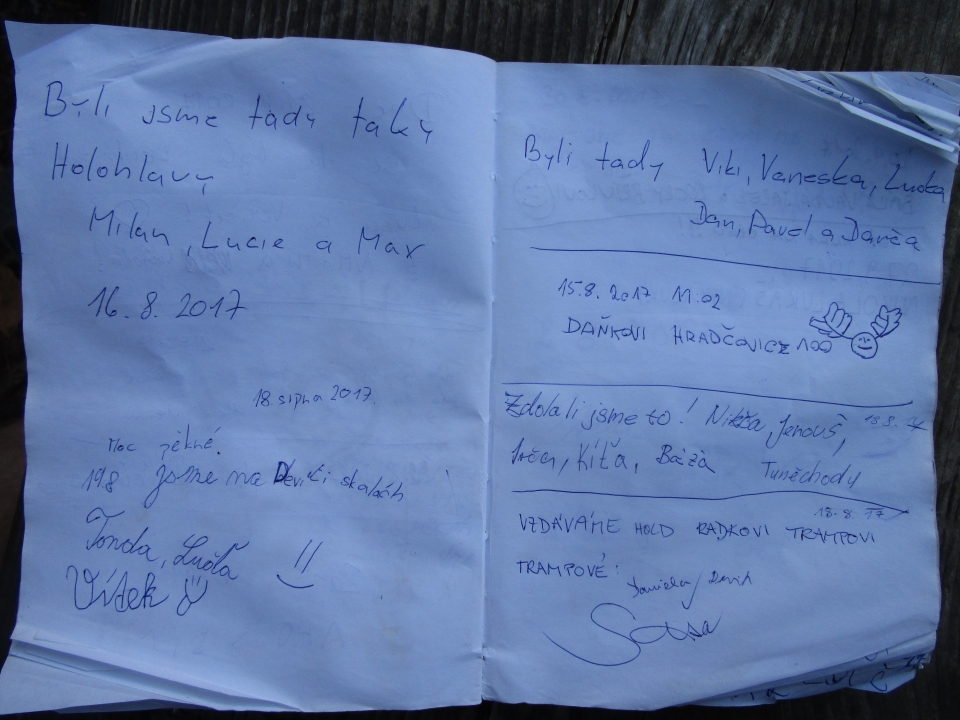 Byli jsme tady taky
Holohlavy
Milan, Lucie a Max
16. 8. 2017
18. srpna 2017.
Moc pěkné.
19.8 Jsme na Devíti skalách
Tonda, Luďa
Vítek
Byli tady Viki, Vaneska, Lucka
Dan, Pavel a Danča
15.8. 2017 11.02
DAŇKOVI HRADČOVICE 100
Zdolali jsme to! Jenouš, 18.8. 17
Kíťa, Bázà Tuněchody
18.8. 17
VZDÁVÁME HOLD RADKOVI TRAMPOVI
TRAMPOVÉ:
Daniela, David